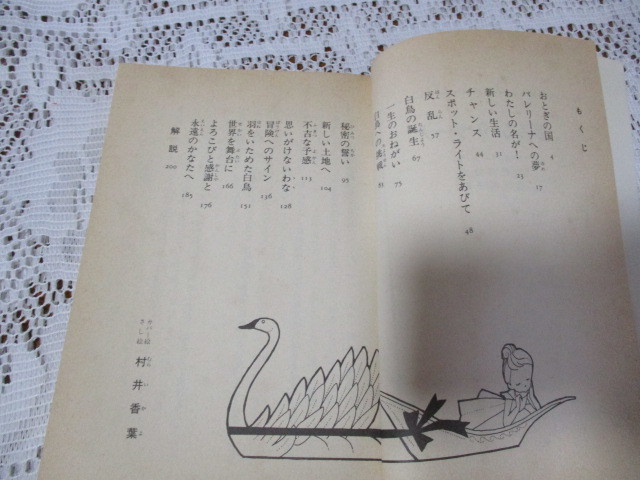 もくじ
おとぎの国 7
バレリーナへの夢 17
わたしの名が! 23
新しい生活 31
チャンス 44
スポット・ライトをあびて 48
反乱 57
白鳥の誕生 67
一生のおねがい 75
秘密の誓い 95
新しい土地へ 104
不吉な予感 113
思いがけないわな 128
冒険へのサイン 138
羽をいためた白鳥 151
世界を舞台に 166
よろこびと感謝と 176
永遠のかなたへ 185
解説 200
カバー絵
さし絵
村井香葉